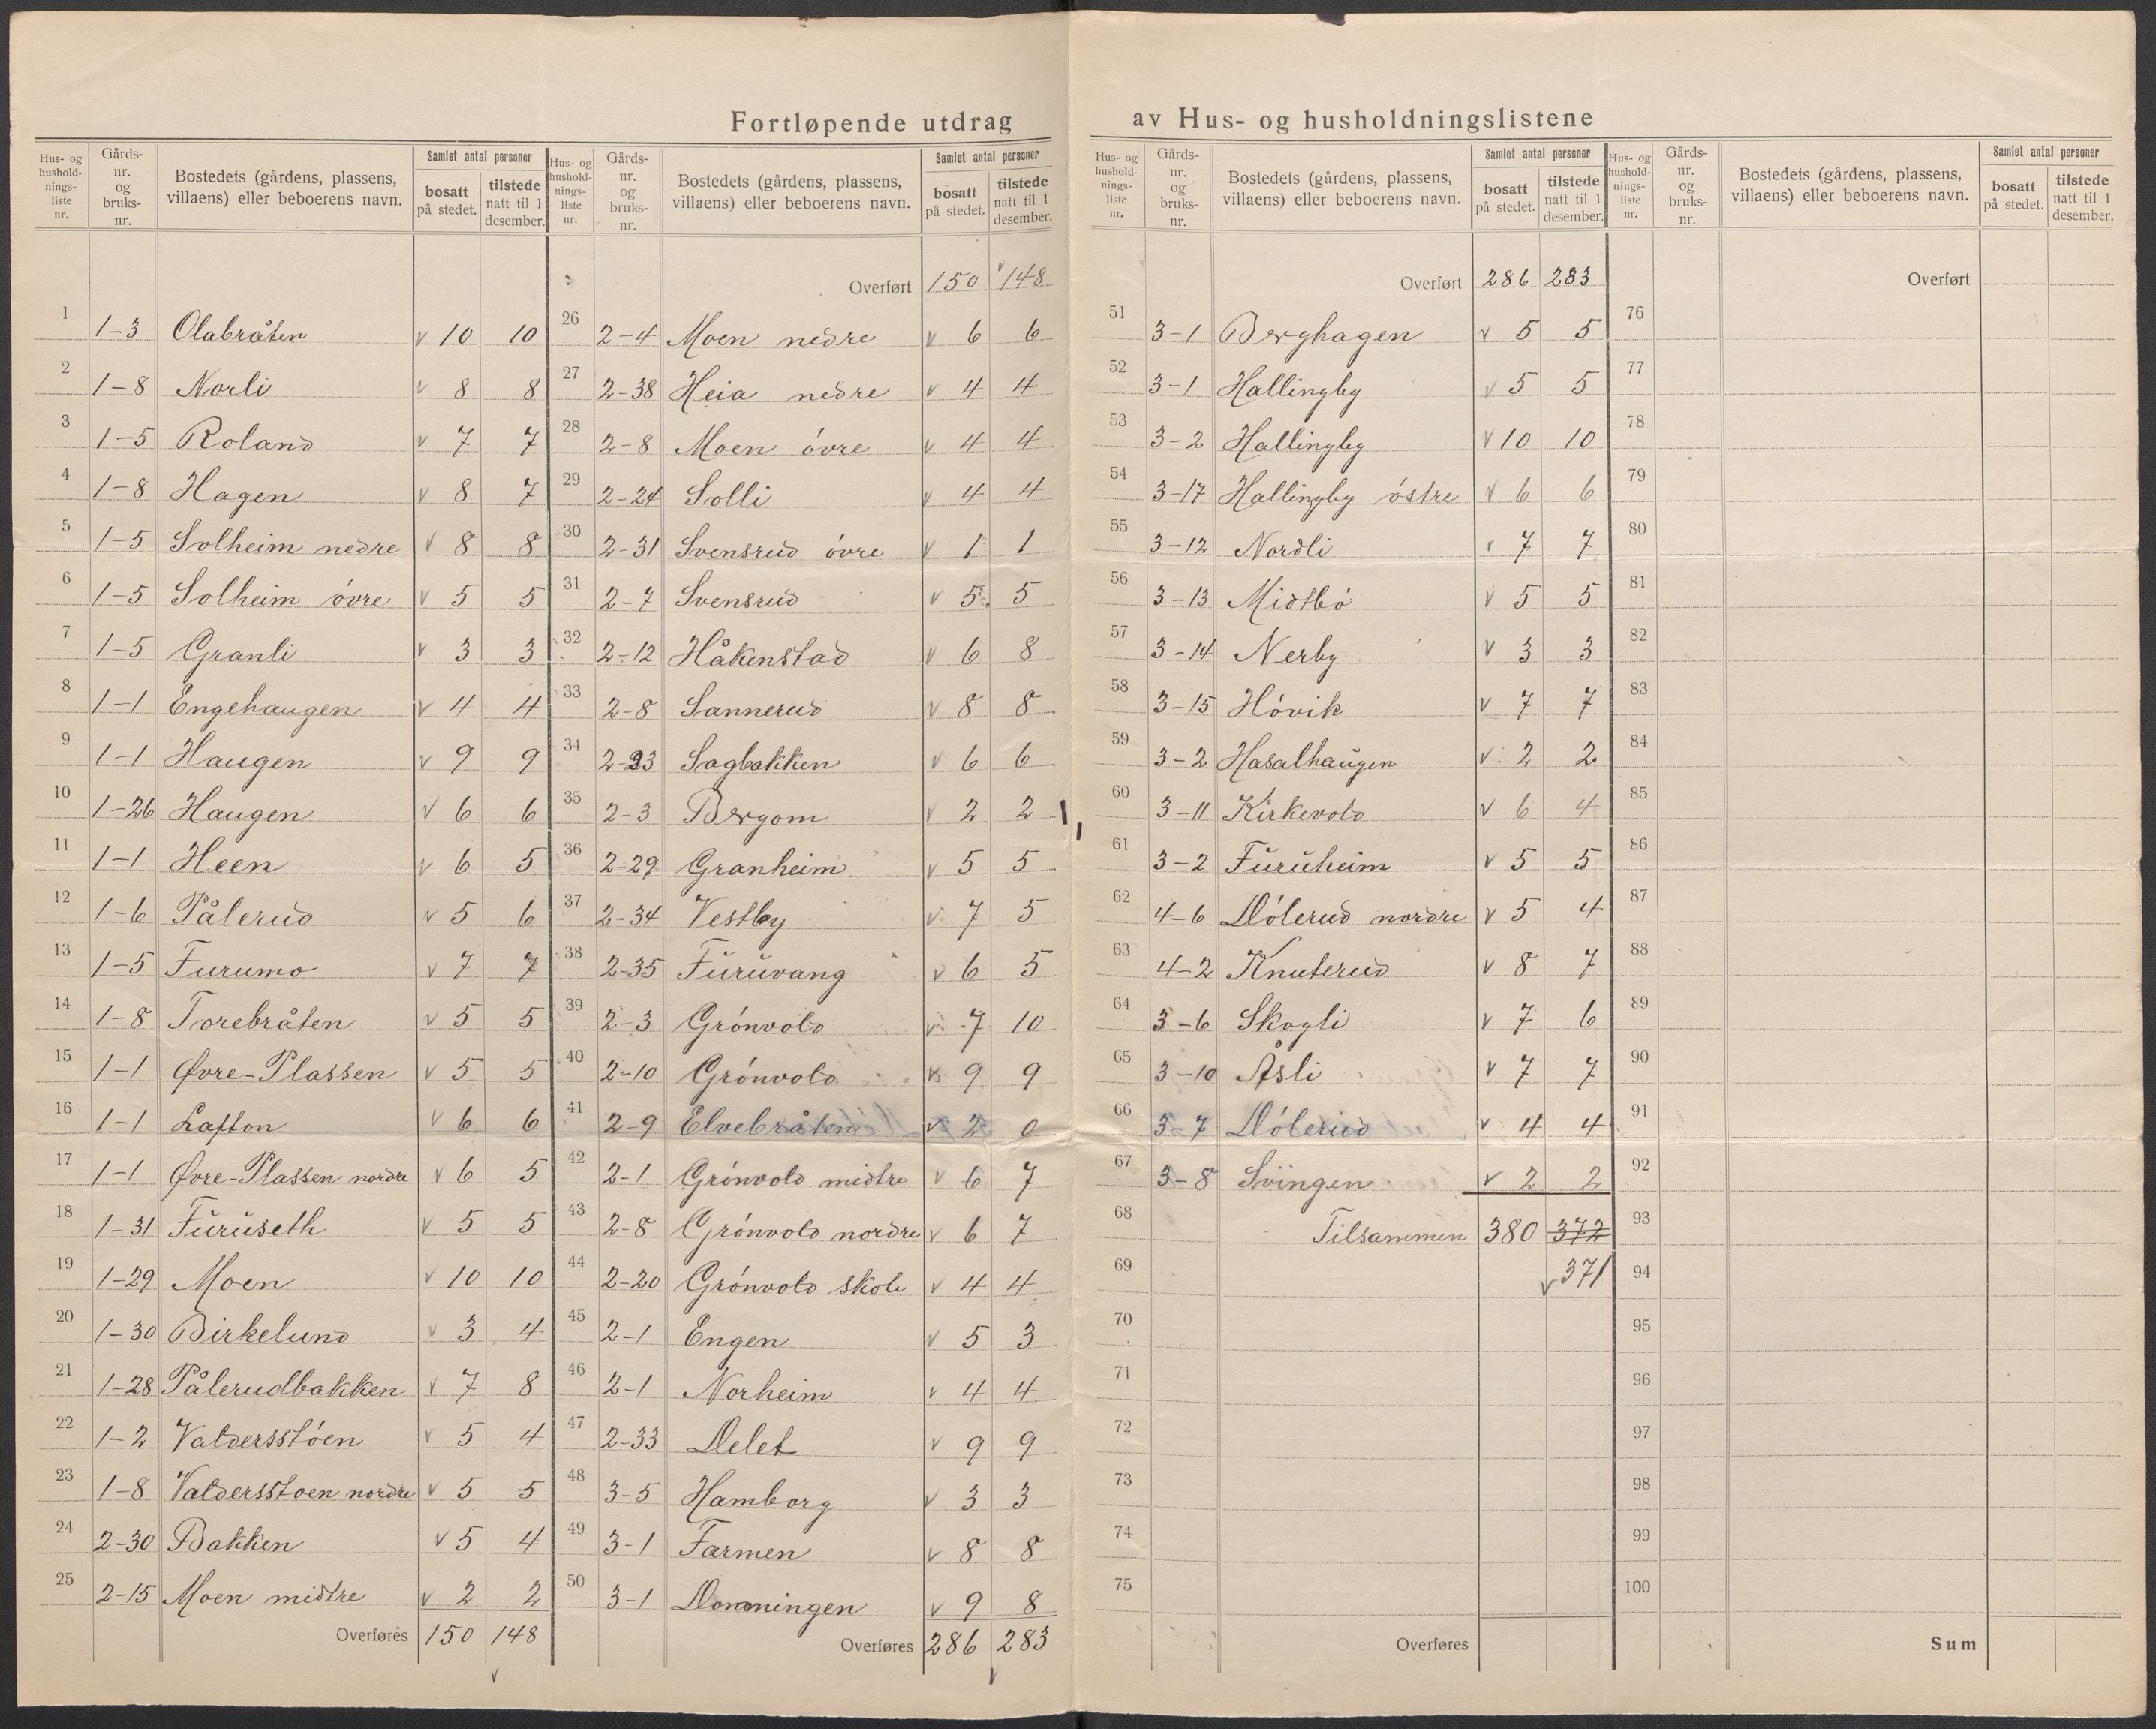 Fortløpende utdrag av Hus- og husholdningslistene
Hus- og husholdnings- liste nr. | Gårds- nr. og bruks- nr. | Bostedets (gårdens, plassens, villaens) eller beboerens navn. | Samlet antal personer | bosatt på stedet. | tilstede natt til 1 desember.
1 1-3 Olabråten v 10 10
2 1-8 Norli v 8 8
3 1-5 Roland v 7 7
4 1-8 Hagen v 8 7
5 1-5 Solheim nedre v 8 8
6 1-5 Solheim óvre v 5 5
7 1-5 Granli v 3 3
8 1-1 Engehaugen v 4 4
9 1-1 Haugen v 9 9
10 1-26 Haugen v 6 6
11 1-1 Heen v 6 5
12 1-6 Pålerud v 5 6
13 1-5 Furumo v 7 7
14 1-8 Torebråten v 5 5
15 1-1 Øvre-Plassen v 5 5
16 1-1 Lafton v 6 6
17 1-1 Øvre-Plassen nordre v 6 5
18 1-31 Furuseth v 5 5
19 1-29 Moen v 10 10
20 1-30 Birkelund v 3 4
21 1-28 Pålerudbakken v 7 8
22 1-2 Valdersstóen v 5 4
23 1-8 Valdersstoen nordre v 5 5
24 2-30 Bakken v 5 4
25 2-15 Moen midtre v 2 2
Overføres 150 148
v
Hus- og husholdnings- liste nr. | Gårds- nr. og bruks- nr. | Bostedets (gårdens, plassens, villaens) eller beboerens navn. | Samlet antal personer | bosatt på stedet. | tilstede natt til 1 desember.
Overført 150 v 148
26 2-4 Moen nedre v 6 6
27 2-38 Heia nedre v 4 4
28 2-8 Moen óvre v 4 4
29 2-24 Solli v 4 4
30 2-31 Svensrud óvre v 1 1
31 2-7 Svensrud v 5 5
32 2-12 Håkenstad v 6 8
33 2-8 Sannerud v 8 8
34 2-23 Sagbakken v 6 6
35 2-3 Bergom v 2 2
36 2-29 Granheim v 5 5
37 2-34 Vestby v 7 5
38 2-35 Furuvang v 6 5
39 2-3 Grónvold v 7 10
40 2-10 Grónvold v 9 9
41 2-9 Elvebråten v 2 0
42 2-1 Grónvold midtre v 6 7
43 2-8 Grónvold nordre v 6 7
44 2-20 Grónvold skole v 4 4
45 2-1 Engen v 5 3
46 2-1 Norheim v 4 4
47 2-33 Delet v 9 9
48 3-5 Hamborg v 3 3
49 3-1 Farmen v 8 8
50 3-1 Donningen v 9 8
Overføres 286 283
v
Hus- og husholdnings- liste nr. | Gårds- nr. og bruks- nr. | Bostedets (gårdens, plassens, villaens) eller beboerens navn. | Samlet antal personer | bosatt på stedet. | tilstede natt til 1 desember.
Overført 286 283
51 3-1 Berghagen v 5 5
52 3-1 Hallingby v 5 5
53 3-2 Hallingby v 10 10
54 3-17 Hallingby óstre v 6 6
55 3-12 Nordli v 7 7
56 3-13 Midtbó v 5 5
57 3-14 Nerby v 3 3
58 3-15 Hóvik v 7 7
59 3-2 Hasalhaugen v 2 2
60 3-11 Kirkevold v 6 4
61 3-2 Furuheim v 5 5
62 4-6 Dólerud nordre v 5 4
63 4-2 Knuterud v 8 7
64 3-6 Skogli v 7 6
65 3-10 Åsli v 7 7
66 3-7 Dólerud v 4 4
67 3-8 Svingen v 2 2
68 Tilsammen 380 372
69 v 371
70
71
72
73
74
75
Overføres
Hus- og husholdnings- liste nr. | Gårds- nr. og bruks- nr. | Bostedets (gårdens, plassens, villaens) eller beboerens navn. | Samlet antal personer | bosatt på stedet. | tilstede natt til 1 desember.
Overført
76
77
78
79
80
81
82
83
84
85
86
87
88
89
90
91
92
93
94
95
96
97
98
99
100
Sum